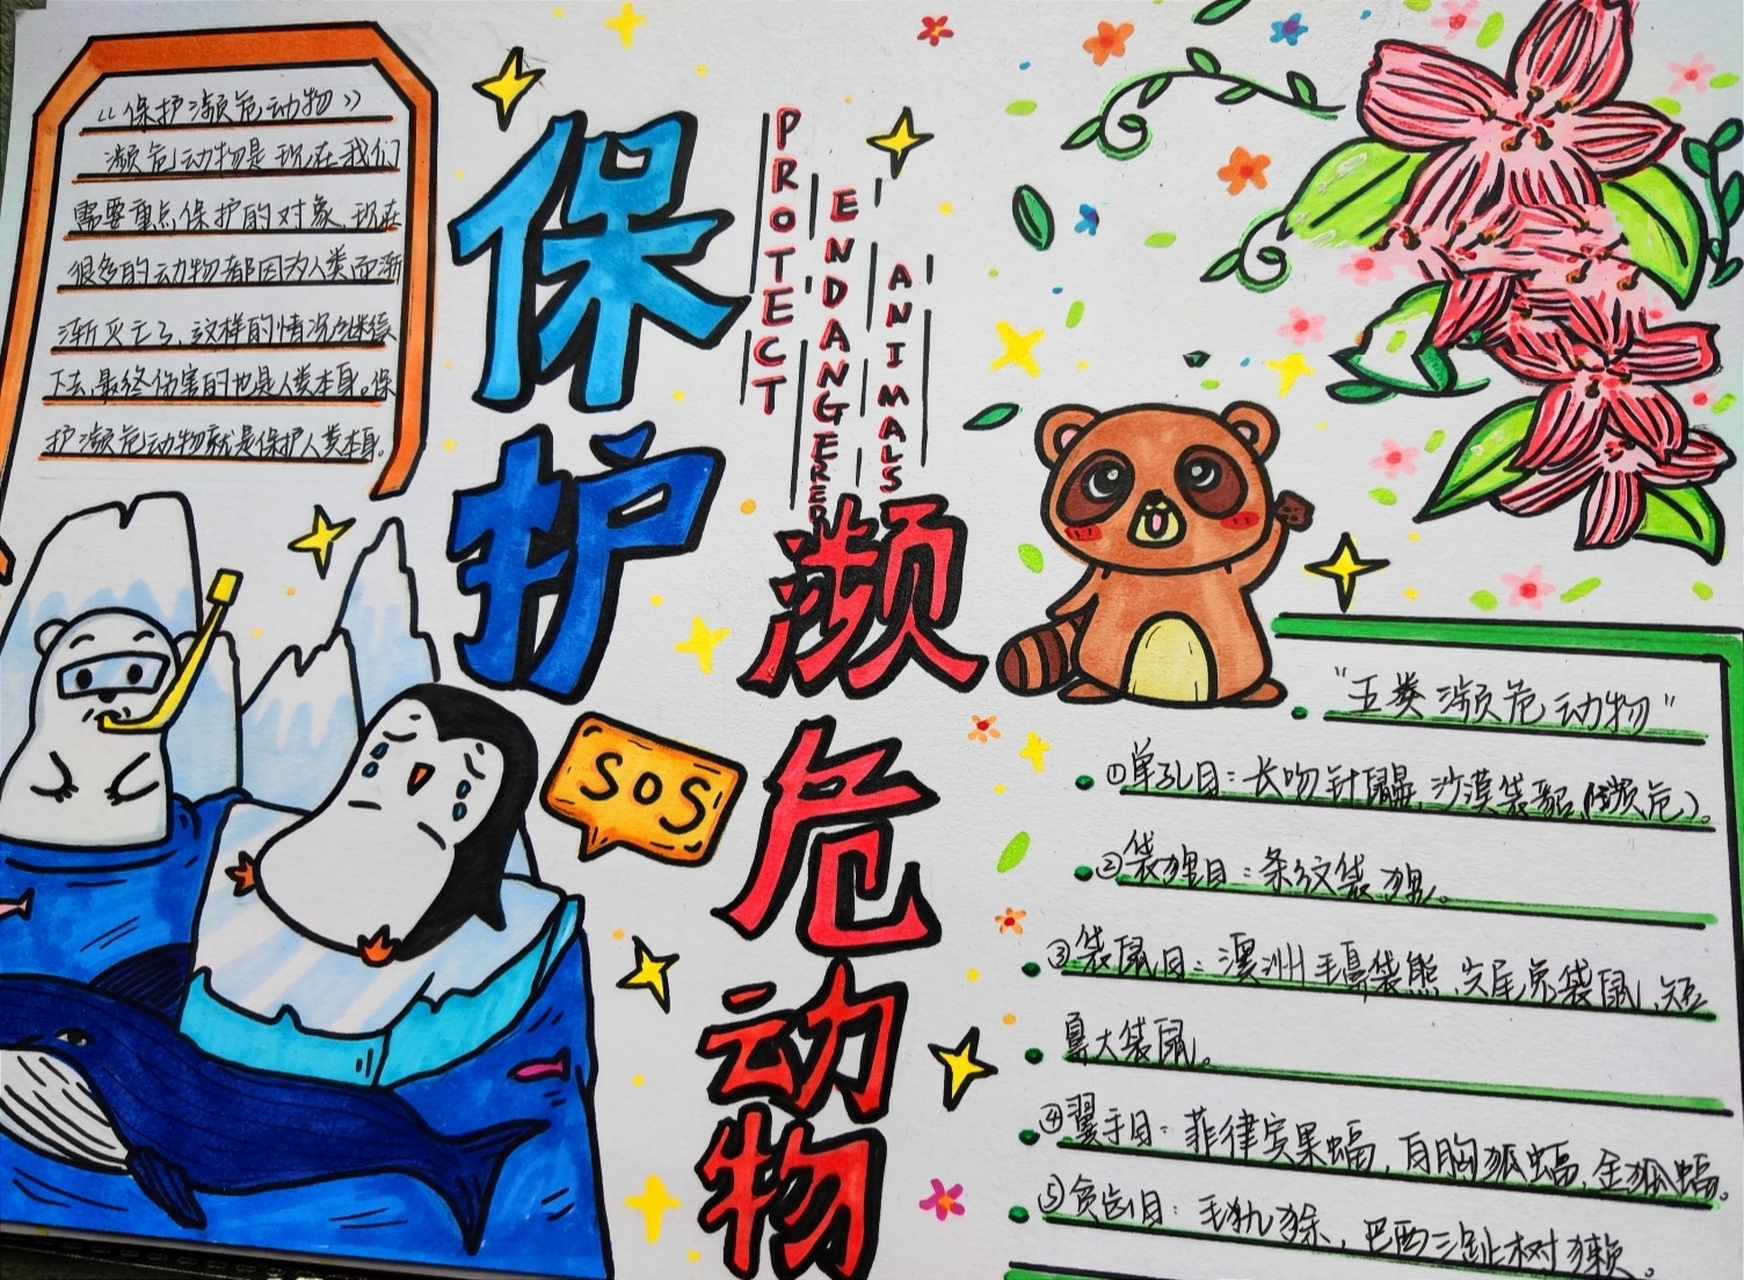 《保护濒危动物》
濒危动物是现在我们
需要重点保护的对象、现在
很多的动物都因为人类而渐
渐灭亡了、这样的情况继续
下去、最终伤害的也是人类本身。保
护濒危动物就是保护人类本身。
保护
濒危动物
PROTECT
ENDANGERED
ANIMALS
SOS
"五类濒危动物"
①单孔目：长吻针鼹、沙漠袋貂、(濒危)。
②袋狸目：条纹袋狸。
③袋鼠目：澳洲毛鼻袋熊、尖尾兔袋鼠、短
鼻大袋鼠。
④翼手目：菲律宾果蝠、百胸狐蝠、金狐蝠。
⑤贫齿目：毛犰狳、巴西三趾树獭。